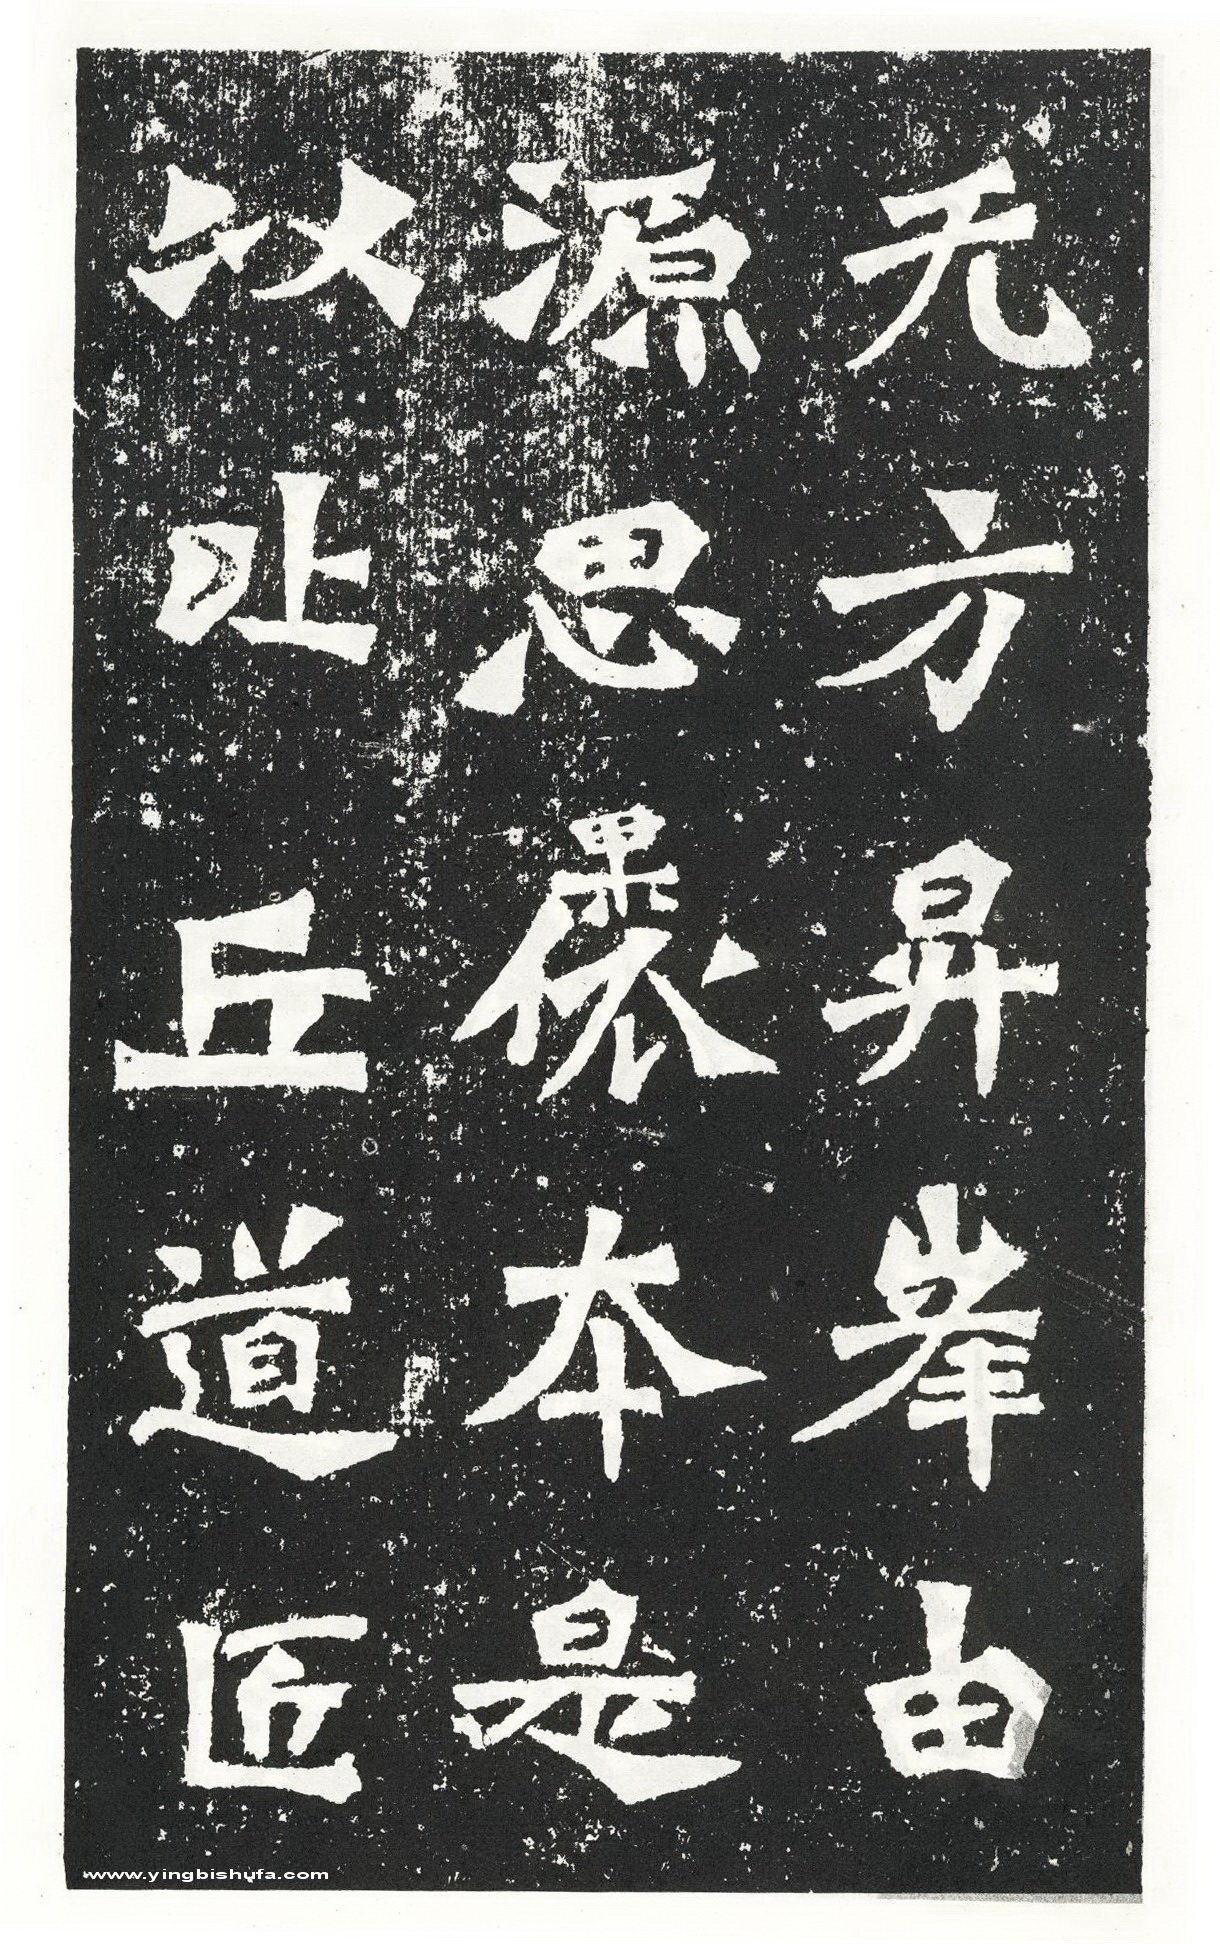 无方昇峯由
源思果依本是
以比丘道匠
www.yingbishufa.com